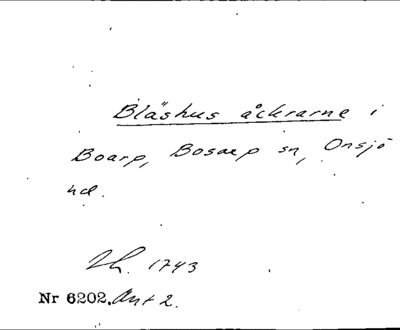 Blåshus åckrarne i
Boarp, Bosarp sn, Onsjö
hd.
Lh. 1743
Nr 6202. Ant 2.